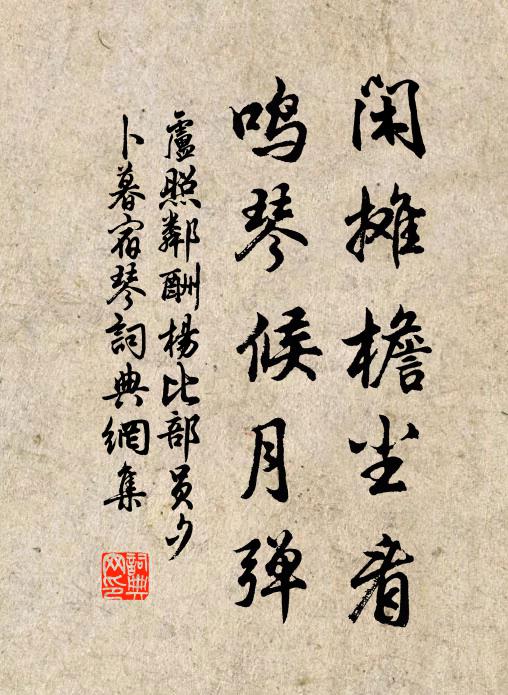 闲摊檐尘看
鸣琴候月弹
盧照鄰酬楊比部員夕
卜暮宿琴詞典網集
詞典
网印